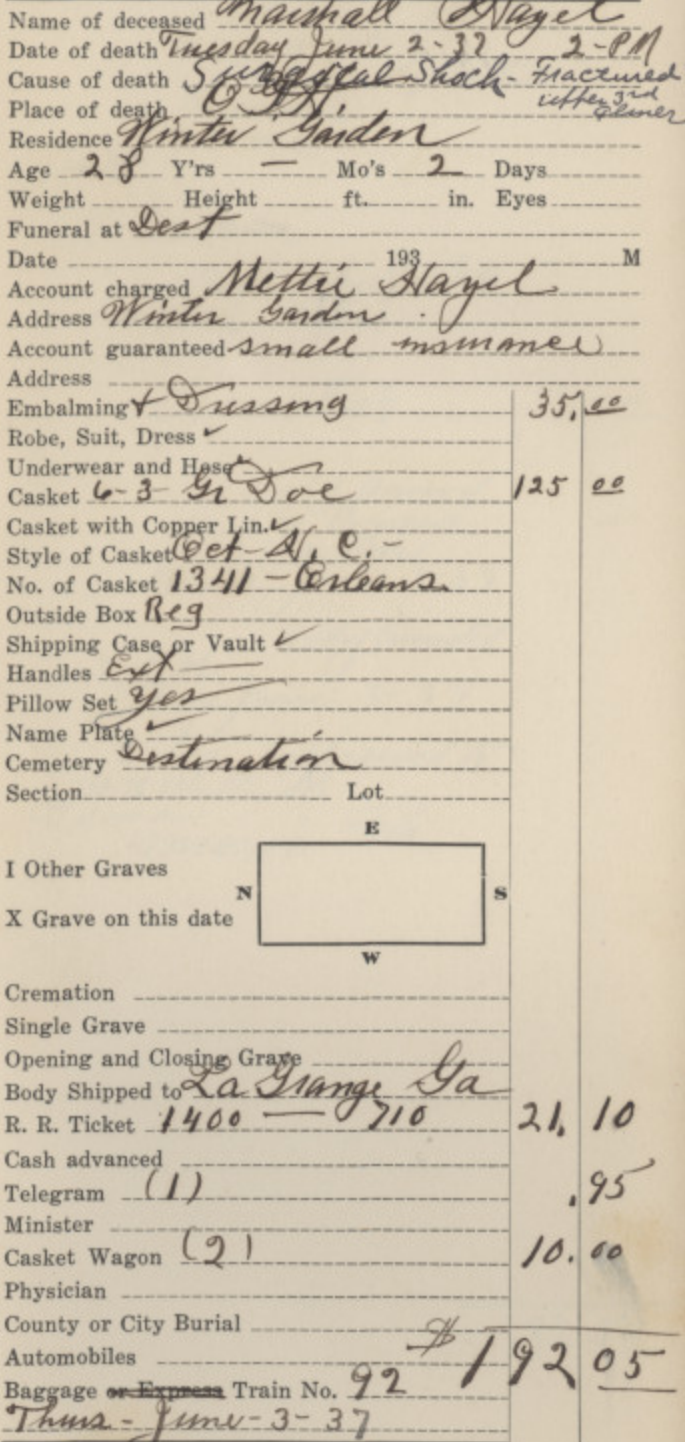 Name of deceased Marshall Hazel
Date of death Tuesday June 2-37 2-PM
Cause of death Surgical Shock - Fractured
upper 3rd
Place of death
Residence Winter Garden
Age 28 Y'rs — Mo's 2 Days
Weight Height ft. in. Eyes
Funeral at Dest
Date 193 M
Account charged Mettie Hazel
Address Winter Garden.
Account guaranteed small insurance
Address
Embalming & Dressing 35.00
Robe, Suit, Dress ✓
Underwear and Hose
Casket 6-3 Gr Doe 125 00
Casket with Copper Lin. ✓
Style of Casket Oct - N.C. -
No. of Casket 1341 - Orleans.
Outside Box Reg
Shipping Case or Vault ✓
Handles Ext —
Pillow Set yes
Name Plate ✓
Cemetery Destination
Section Lot
E
I Other Graves
N S
X Grave on this date
W
Cremation
Single Grave
Opening and Closing Grave
Body Shipped to La Grange Ga
R. R. Ticket 1400 — 710 21.10
Cash advanced
Telegram (1) .95
Minister
Casket Wagon (2) 10.00
Physician
County or City Burial
Automobiles $192 05
Baggage or Express Train No. 92
Thurs - June - 3 - 37